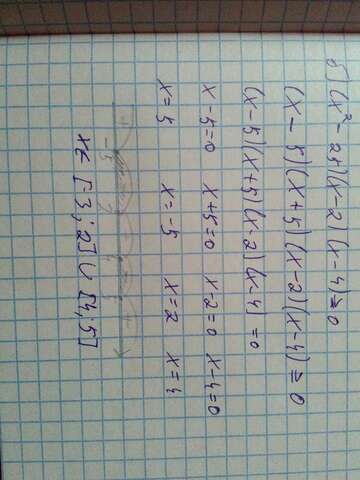 5) (x²-25)(x-2)(x-4)≥0
(x-5)(x+5)(x-2)(x-4)≥0
(x-5)(x+5)(x-2)(x-4)=0
x-5=0 x+5=0 x-2=0 x-4=0
x=5 x=-5 x=2 x=4
x∈[-3;2]∪[4;5]